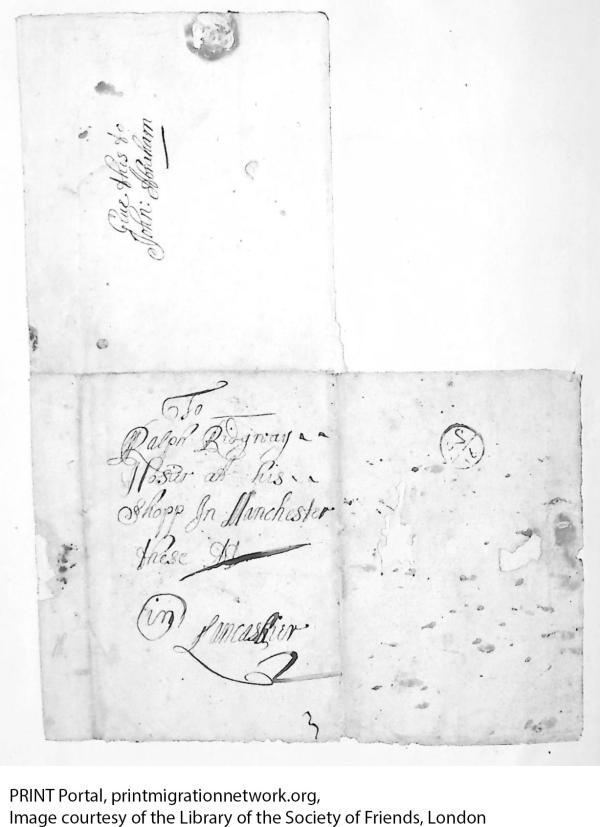 Give this to
John: Abraham
To
Ralph Ridgway
at his
Shopp In Manchester
these
in
Lancashier
3
PRINT Portal, printmigrationnetwork.org,
Image courtesy of the Library of the Society of Friends, London